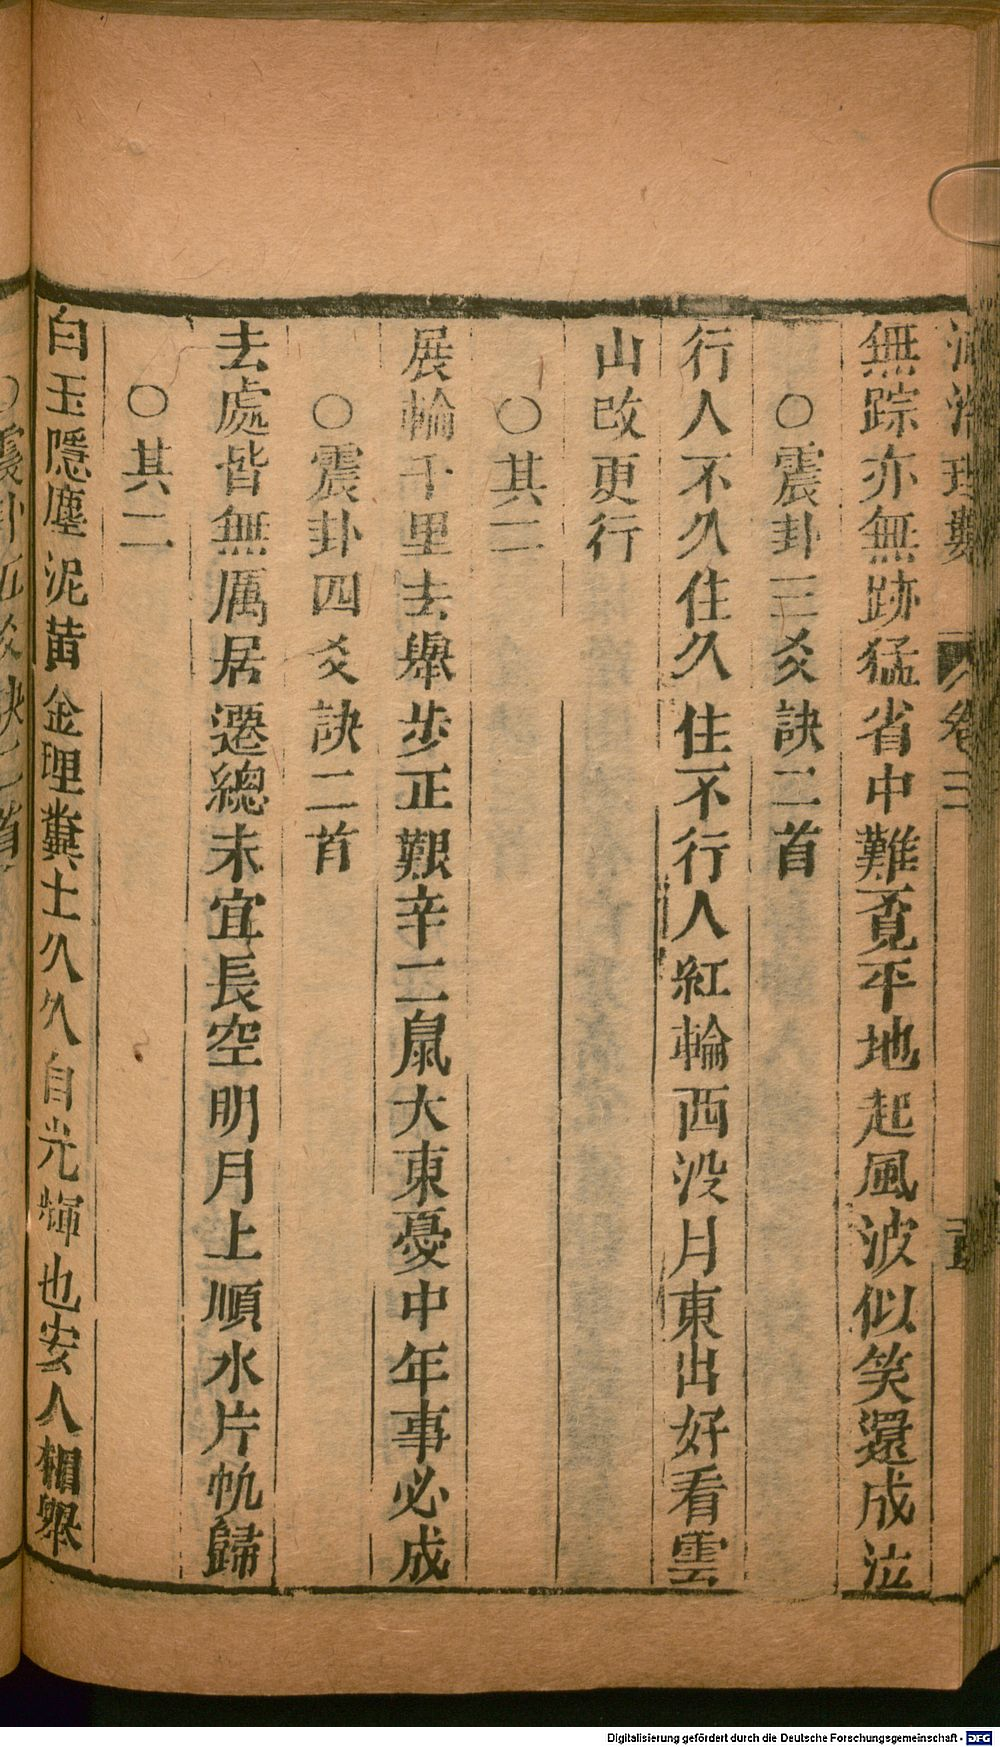 河洛理數 卷三
無踪亦無跡猛省中難覔平地起風波似笑還成泣
○震卦三爻訣二首
行人不久住久住不行人紅輪西没月東出好看雲
山改更行
○其二
展輪千里去舉步正艱辛二鼠大東憂中年事必成
○震卦四爻訣二首
去處皆無厲居遷總未宜長空明月上順水片帆歸
○其二
白玉隱塵泥黄金理糞土久久自光輝也安人相舉
○震卦五爻訣二首
Digitalisierung gefördert durch die Deutsche Forschungsgemeinschaft - DFG